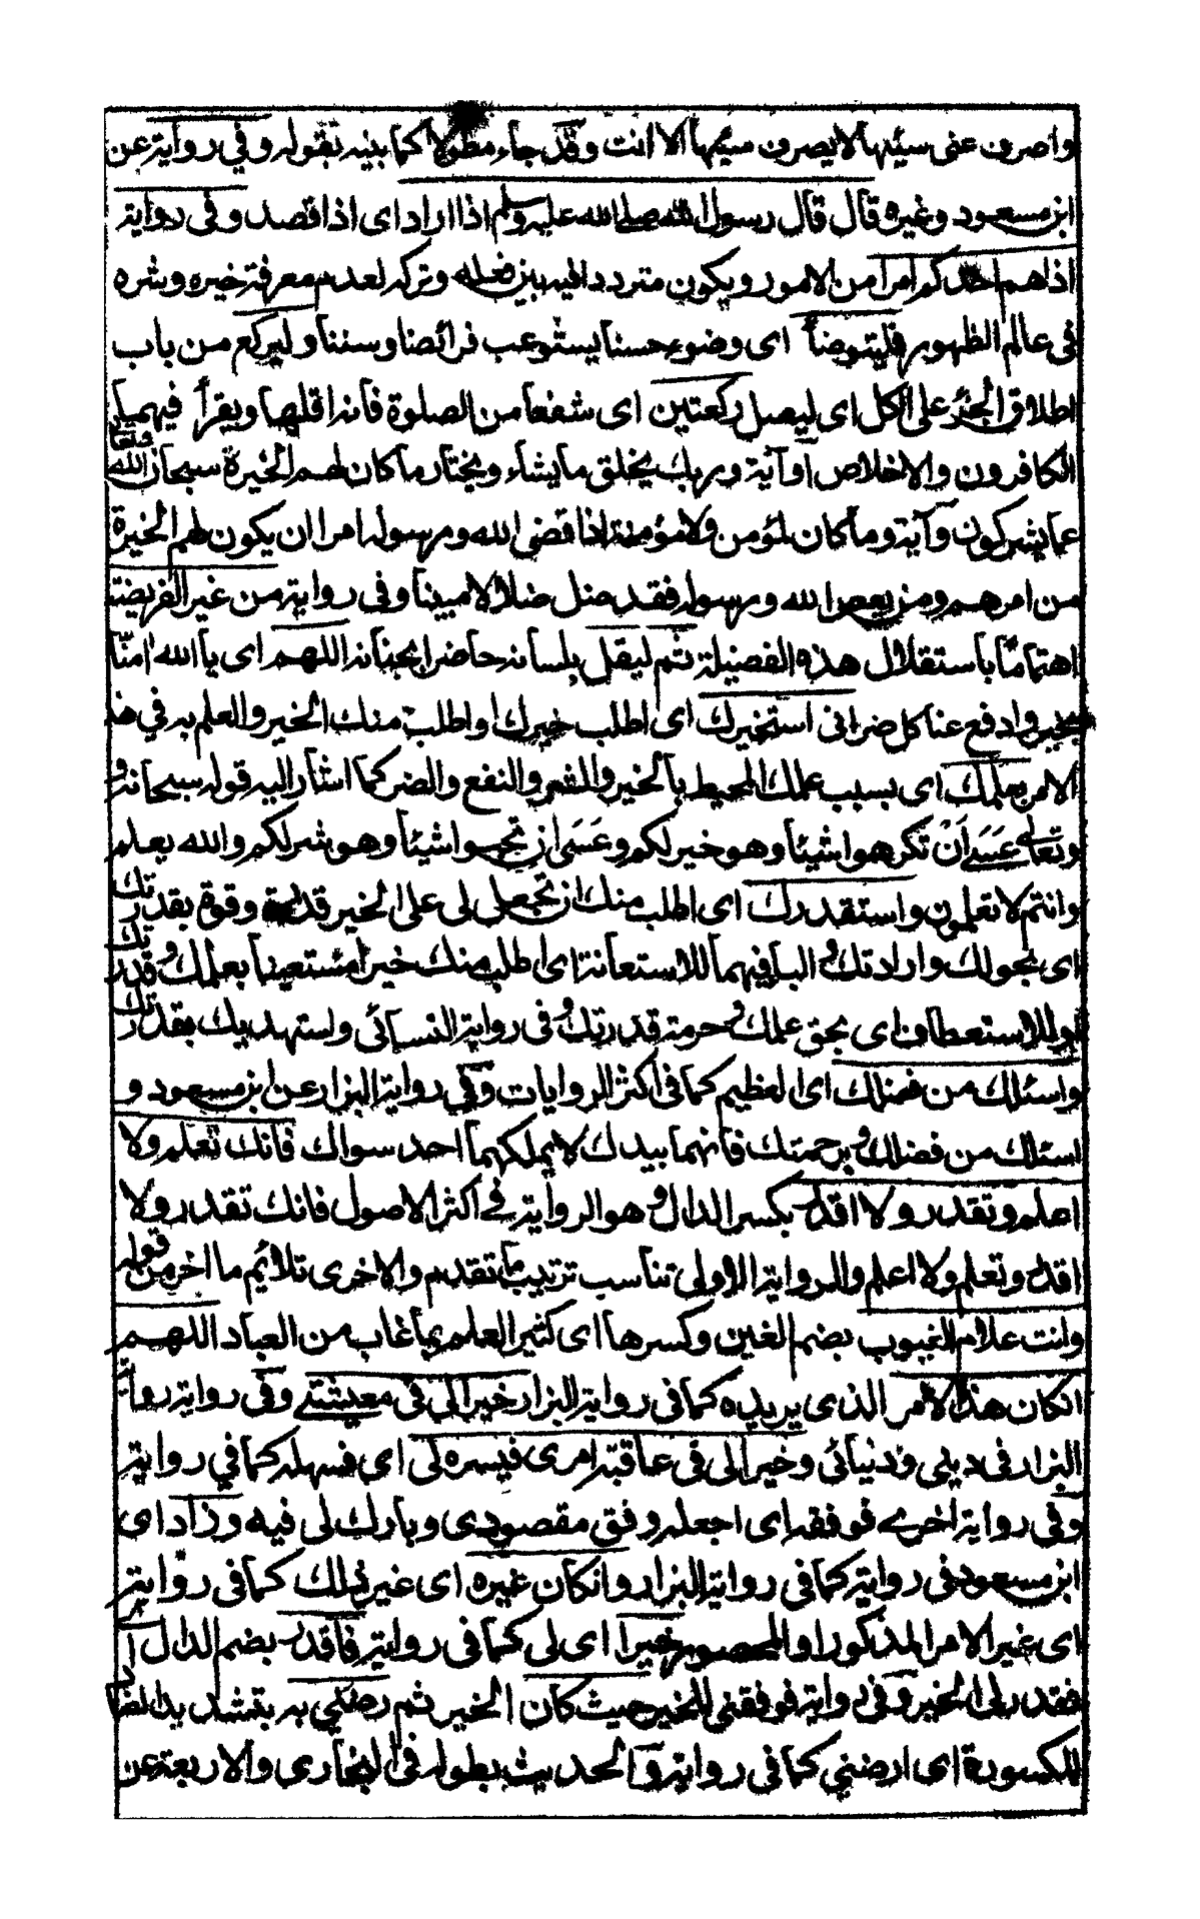 واصرف عنى سيئها لا يصرف سيئها الا انت وقد جاء مطولا كما بينه بقوله وفي رواية عن
ابن مسعود وغيره قال قال رسول الله صلى الله عليه وسلم اذا اراد اى اذا قصد وفى رواية
اذا هم احدكم امرا من الامور ويكون مترددا فيه بين فعله وتركه لعدم معرفة خيره وشره
فى عالم الظهور فليتوضأ اى وضوء حسنا يستوعب فرائضا وسننا وليركع من باب
اطلاق الجزء على الكل اى ليصل ركعتين اى شفعا من الصلوة فانه اقلها ويقرأ فيهما
الكافرون والاخلاص او آية وربك يخلق ما يشاء ويختار ما كان لهم الخيرة سبحان الله وتعالى
عما يشركون وآية وما كان لمؤمن ولا مؤمنة اذا قضى الله ورسوله امرا ان يكون لهم الخيرة
من امرهم ومن يعص الله ورسوله فقد ضل ضلالا مبينا وفى رواية من غير الفريضة
اهتماما باستقلال هذه الفضيلة ثم ليقل بلسانه حاضرا بجنانه اللهم اى يا الله امنا
بخير وادفع عنا كل ضر انى استخيرك اى اطلب خيرك او اطلب منك الخير والعلم به في هذا
الامر بعلمك اى بسبب علمك المحيط بالخير والشر والنفع والضر كما اشار اليه قوله سبحانه و
وتعالى عسى ان تكرهوا شيئا وهو خير لكم وعسى ان تحبوا شيئا وهو شر لكم والله يعلم
وانتم لا تعلمون واستقدرك اى اطلب منك ان تجعل لى على الخير قدرة وقوة بقدرتك
اى بحولك وارادتك والبا فيهما للاستعانة اى اطلب منك خيرا مستعينا بعلمك وقدرتك
او للاستعطاف اى بحق علمك وحرمة قدرتك وفى رواية النسائى واستهديك بقدرتك
واسئلك من فضلك اى العظيم كما فى اكثر الروايات وفي رواية البزار عن ابن مسعود و
اسئلك من فضلك ورحمتك فانهما بيدك لا يملكهما احد سواك فانك تعلم ولا
اعلم وتقدر ولا اقدر بكسر الدال وهو الرواية في اكثر الاصول فانك تقدر ولا
اقدر وتعلم ولا اعلم والرواية الاولى تناسب ترتيب ما تقدم والاخرى تلائم ما اخر من قوله
وانت علام الغيوب بضم الغين وكسرها اى كثير العلم بما غاب من العباد اللهم
ان كان هذا الامر الذى يريده كما فى رواية البزار خيرا لى فى معيشتى وفى رواية رواية
البزار فى دينى ودنيائى وخيرا لى فى عاقبة امرى فيسره لى اى فسهله كما في رواية
وفى رواية اخرى فوفقه اى اجعله وفق مقصودى وبارك لى فيه وزاد اى
ابن مسعود فى رواية كما فى رواية البزار وان كان غيره اى غير ذلك كما فى رواية
اى غير الامر المذكور او المحصور خيرا اى لى كما فى رواية فاقدر بضم الدال اى
فقدر لى الخير وفى رواية فوفقنى للخير حيث كان الخير ثم رضنى به بتشديد الضاد
المكسورة اى ارضنى كما فى رواية والحديث بطوله فى البخارى والاربعة عن